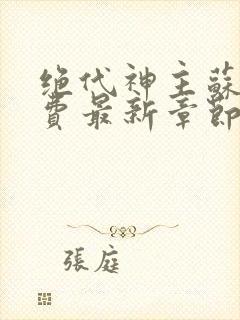 绝代神主蘇
費最新章節
張庭